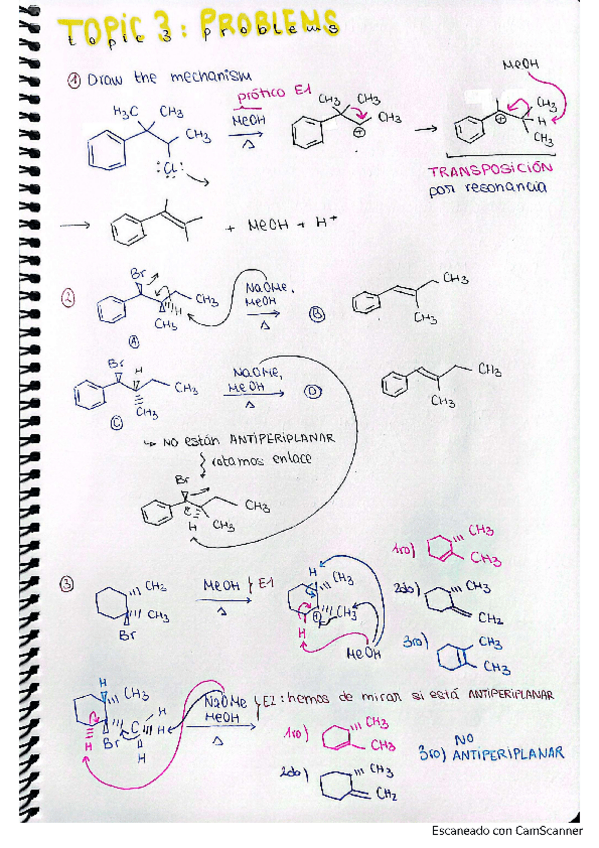 TOPIC 3: PROBLEMS
topic 3 problems
① Draw the mechanism
H₃C CH₃ CH₃ Cl
prótico E1
MeOH
Δ
CH₃ CH₃ CH₃
MeOH
CH₃ H CH₃
TRANSPOSICIÓN
por resonancia
+ MeOH + H⁺
②
Br H CH₃ CH₃
NaOMe,
MeOH
Δ
Ⓐ
Ⓑ
CH₃
CH₃
Br H CH₃ CH₃
NaOMe,
MeOH
Δ
Ⓒ
Ⓓ
CH₃
CH₃
↪ NO están ANTIPERIPLANAR
rotamos enlace
Br CH₃ H CH₃
③
CH₃
CH₃
Br
MeOH } E1
Δ
H CH₃ CH₃ H
MeOH
1ro) CH₃ CH₃
2do) CH₃ CH₂
3ro) CH₃ CH₃
H CH₃ H Br C H H H
NaOMe } E2: hemos de mirar si está ANTIPERIPLANAR
MeOH
Δ
1ro) CH₃ CH₃
2do) CH₃ CH₂
3ro) NO ANTIPERIPLANAR
Escaneado con CamScanner